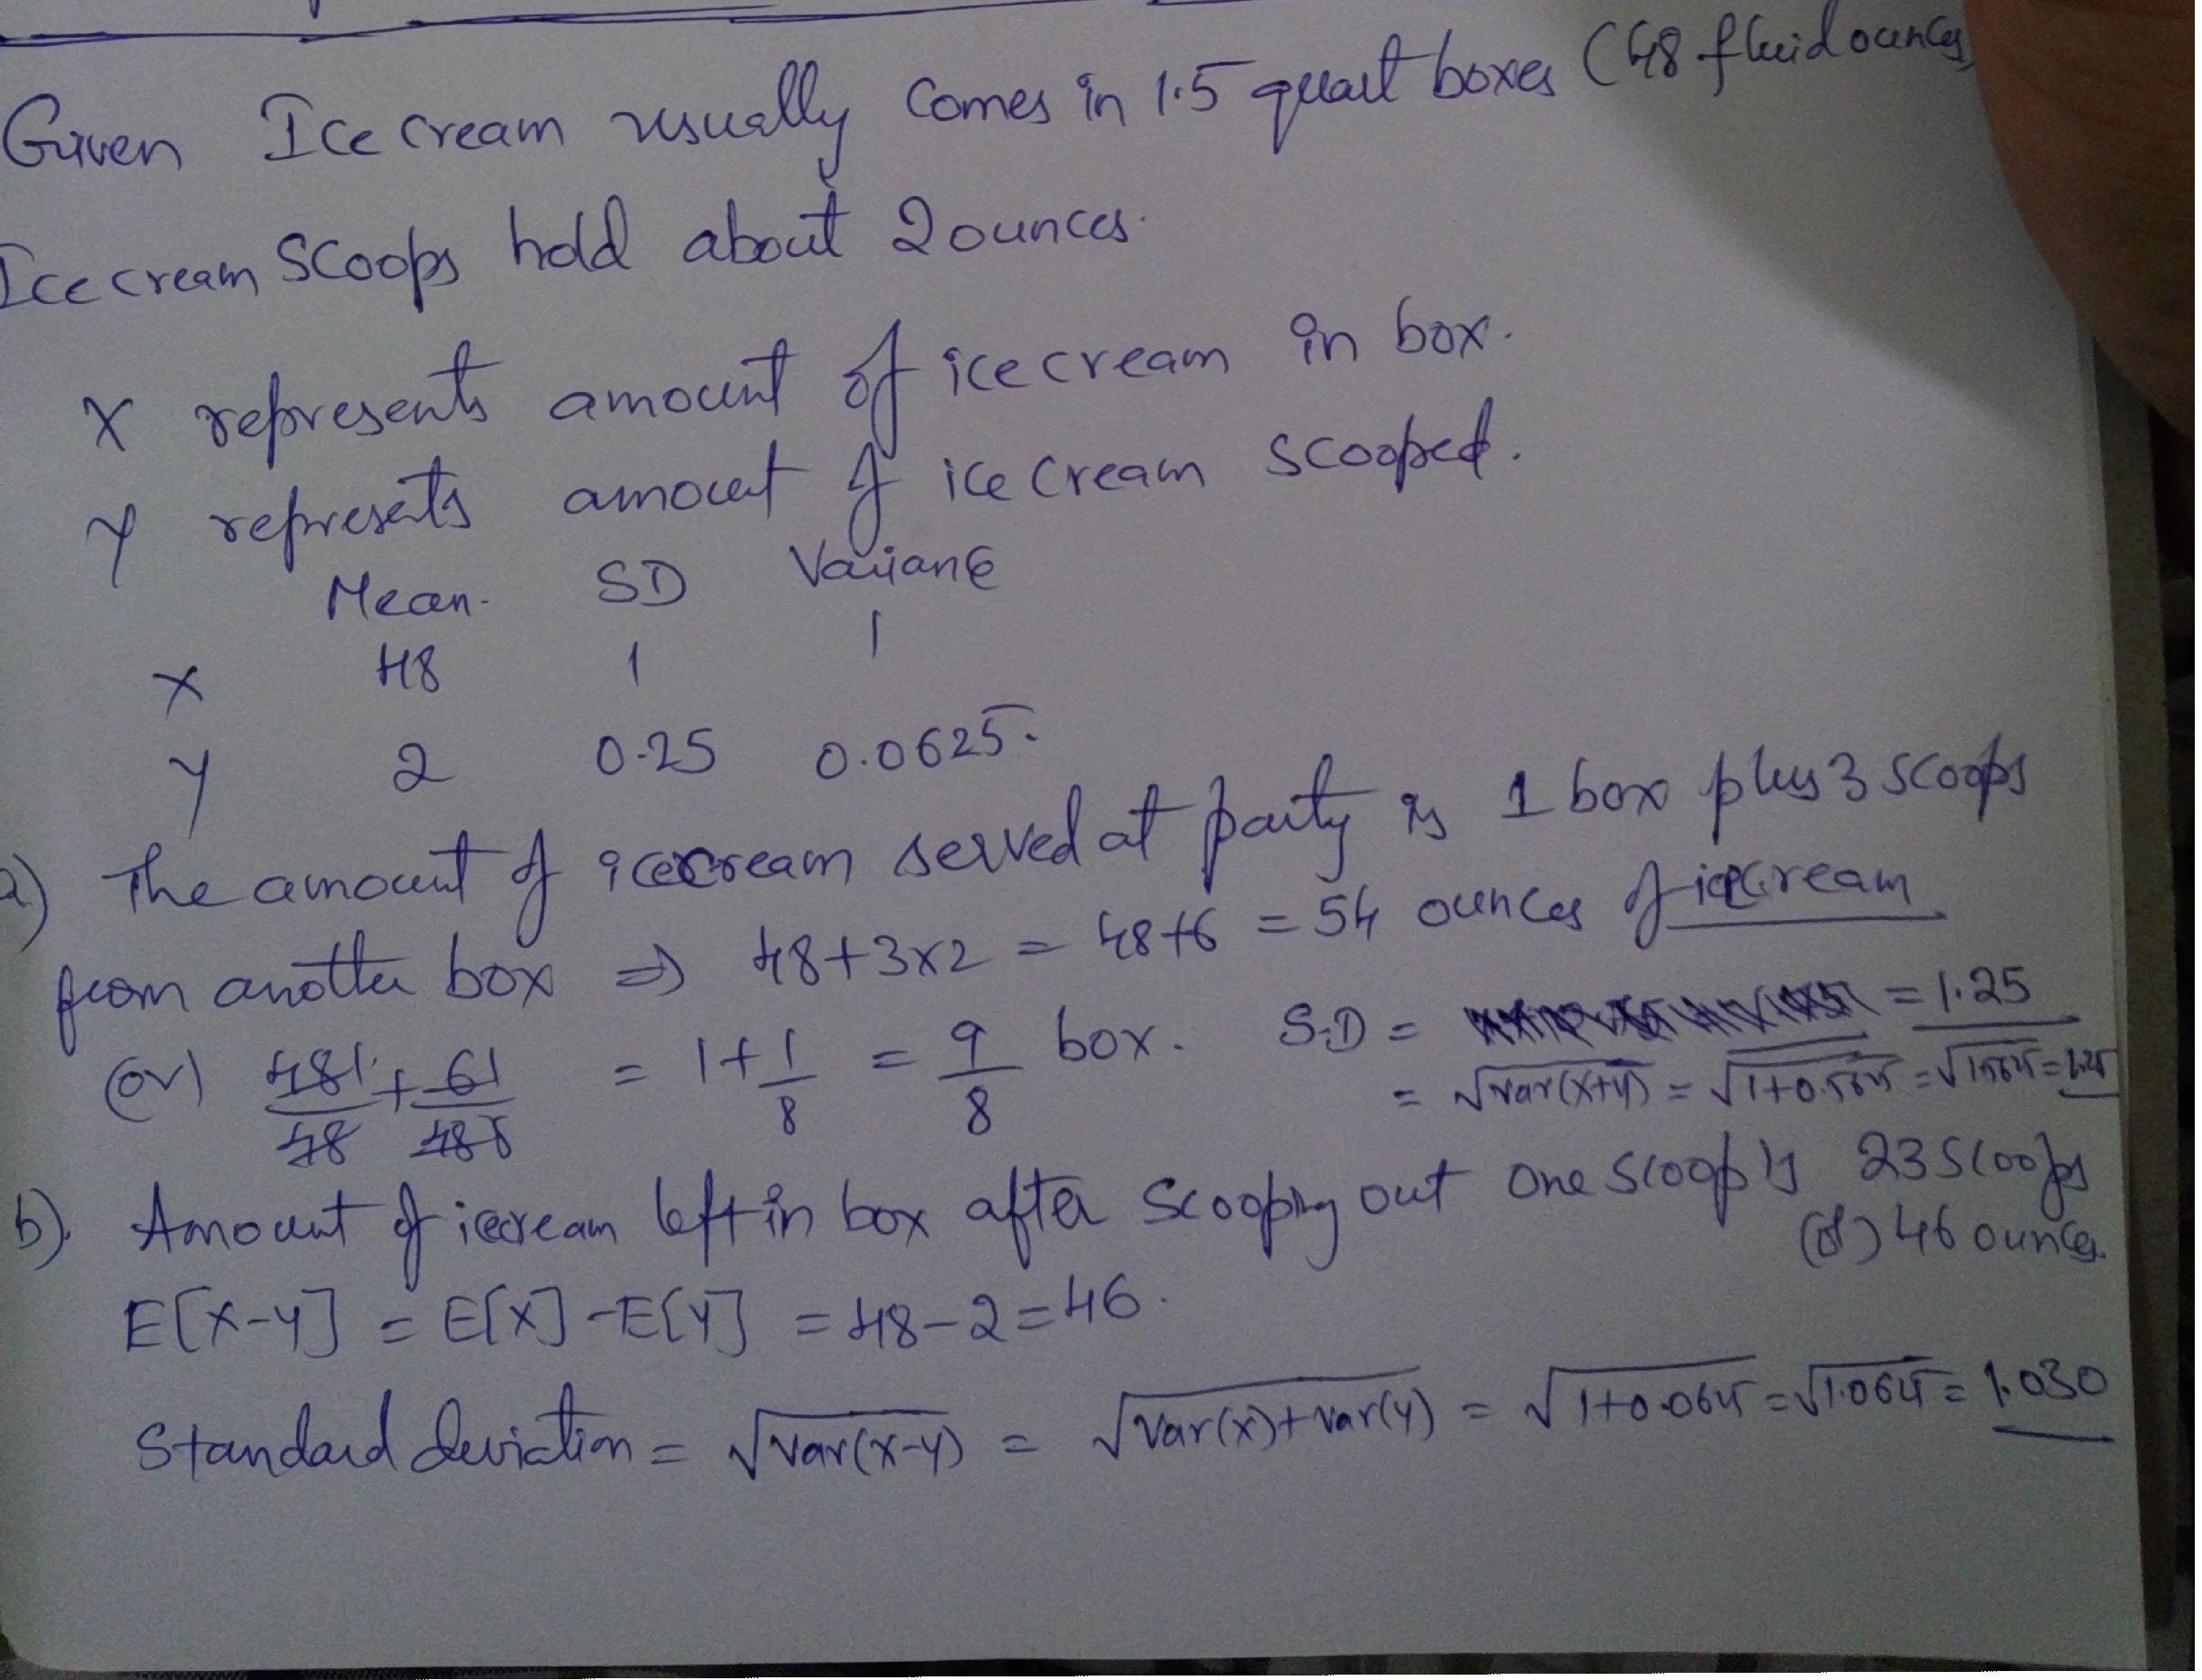 Given Ice cream usually comes in 1.5 quart boxes (48 fluid ounces
Ice cream Scoops hold about 2 ounces.
X represents amount of ice cream in box.
Y represents amount of ice cream scooped.
Mean. SD Variance
X 48 1 1
Y 2 0.25 0.0625.
a) The amount of icecream served at party is 1 box plus 3 scoops
from another box ⇒ 48+3x2 = 48+6 = 54 ounces of icecream
(or) 48/48 + 6/48 = 1+1/8 = 9/8 box. S.D = = 1.25
= √var(x+y) = √1+0.5625 = √1.5625 = 1.25
b). Amount of icecream left in box after scooping out one scoop is 23 Scoops
(or) 46 ounces.
E[X-Y] = E[X]-E[Y] = 48-2=46.
Standard deviation = √var(x-y) = √var(x)+var(y) = √1+0.0625 = √1.0625 = 1.030